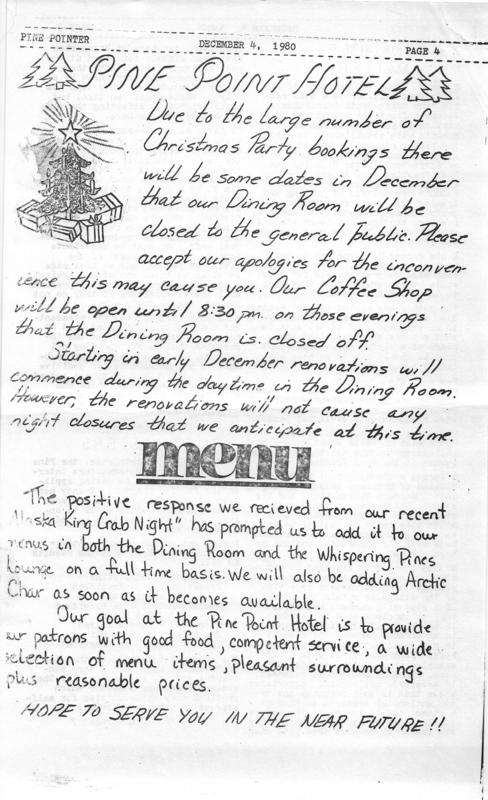 PINE POINTER DECEMBER 4, 1980 PAGE 4
PINE POINT HOTEL
Due to the large number of
Christmas Party bookings there
will be some dates in December
that our Dining Room will be
closed to the general public. Please
accept our apologies for the inconven-
ience this may cause you. Our Coffee Shop
will be open until 8:30 pm. on those evenings
that the Dining Room is closed off.
Starting in early December renovations will
commence during the daytime in the Dining Room.
However, the renovations will not cause any
night closures that we anticipate at this time.
menu
The positive response we recieved from our recent
Alaska King Crab Night" has prompted us to add it to our
menus in both the Dining Room and the Whispering Pines
Lounge on a full time basis. We will also be adding Arctic
Char as soon as it becomes available.
Our goal at the Pine Point Hotel is to provide
our patrons with good food, competent service, a wide
selection of menu items, pleasant surroundings
plus reasonable prices.
HOPE TO SERVE YOU IN THE NEAR FUTURE!!